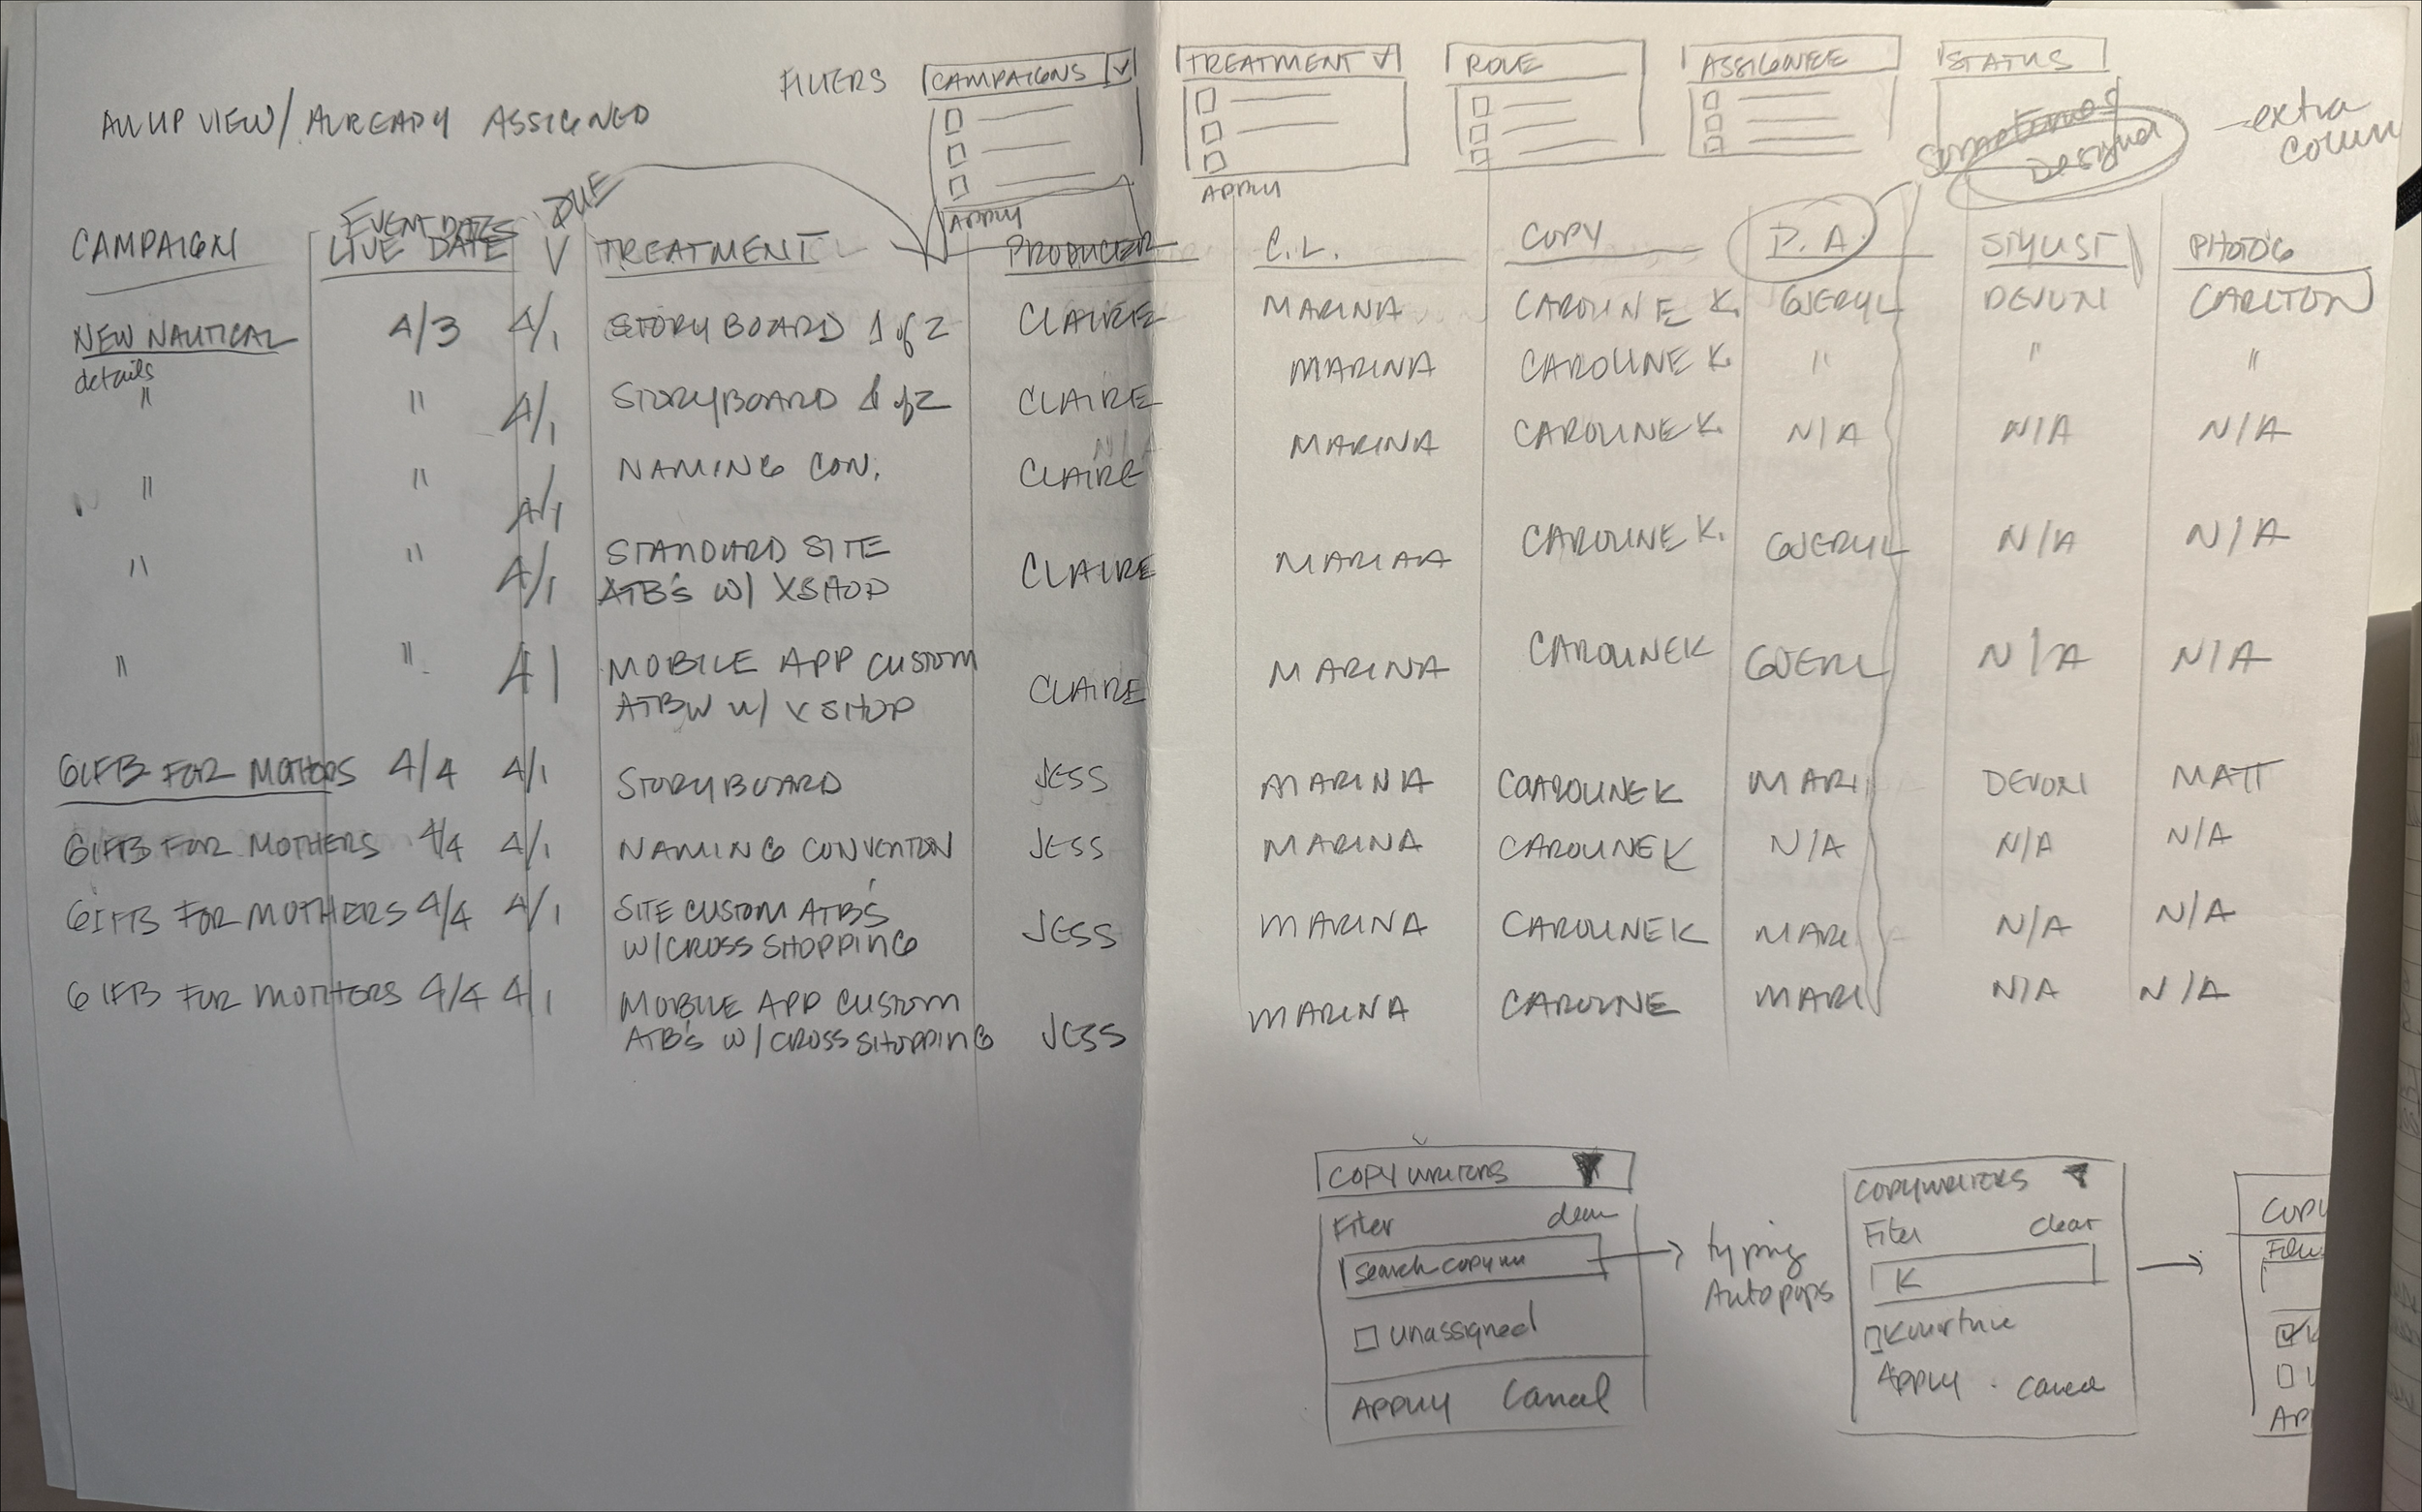 ALL UP VIEW/ ALREADY ASSIGNED
FILTERS
CAMPAIGNS
APPLY
TREATMENT
APPLY
ROLE
ASSIGNEE
STATUS
Sometimes
Designer
- extra
column
EVENT DATES
DUE
CAMPAIGN LIVE DATE TREATMENT PRODUCER C.L. COPY P.A. STYLIST PHOTOG
NEW NAUTICAL 4/3 4/1 STORYBOARD 1 of 2 CLAIRE MARINA CAROLINE K. GUERYL DEVON CARLTON
details
" " 4/1 STORYBOARD 1 of 2 CLAIRE MARINA CAROLINE K. " " "
N/A
" " 4/1 NAMING CON. CLAIRE MARINA CAROLINE K. N/A N/A N/A
" " 4/1 STANDARD SITE CLAIRE MARINA CAROLINE K. GUERYL N/A N/A
ATB's W/ XSHOP
" " 4/1 MOBILE APP CUSTOM CLAIRE MARINA CAROLINE K GUERL N/A N/A
ATBW w/ XSHOP
GIFTS FOR MOTHERS 4/4 4/1 STORYBOARD JESS MARINA CAROLINE K MARI DEVON MATT
GIFTS FOR MOTHERS 4/4 4/1 NAMING CONVENTION JESS MARINA CAROLINE K N/A N/A N/A
GIFTS FOR MOTHERS 4/4 4/1 SITE CUSTOM ATB'S JESS MARINA CAROLINE K MARI N/A N/A
W/CROSS SHOPPING
GIFTS FOR MOTHERS 4/4 4/1 MOBILE APP CUSTOM JESS MARINA CAROLINE MARI N/A N/A
ATB's W/CROSS SHOPPING
COPYWRITERS
Filter clear
Search copywr
Unassigned
APPLY Cancel
typing
Autopops
COPYWRITERS
Filter clear
K
Kourtnie
APPLY . Cancel
COPY
Filter
K
U
AP